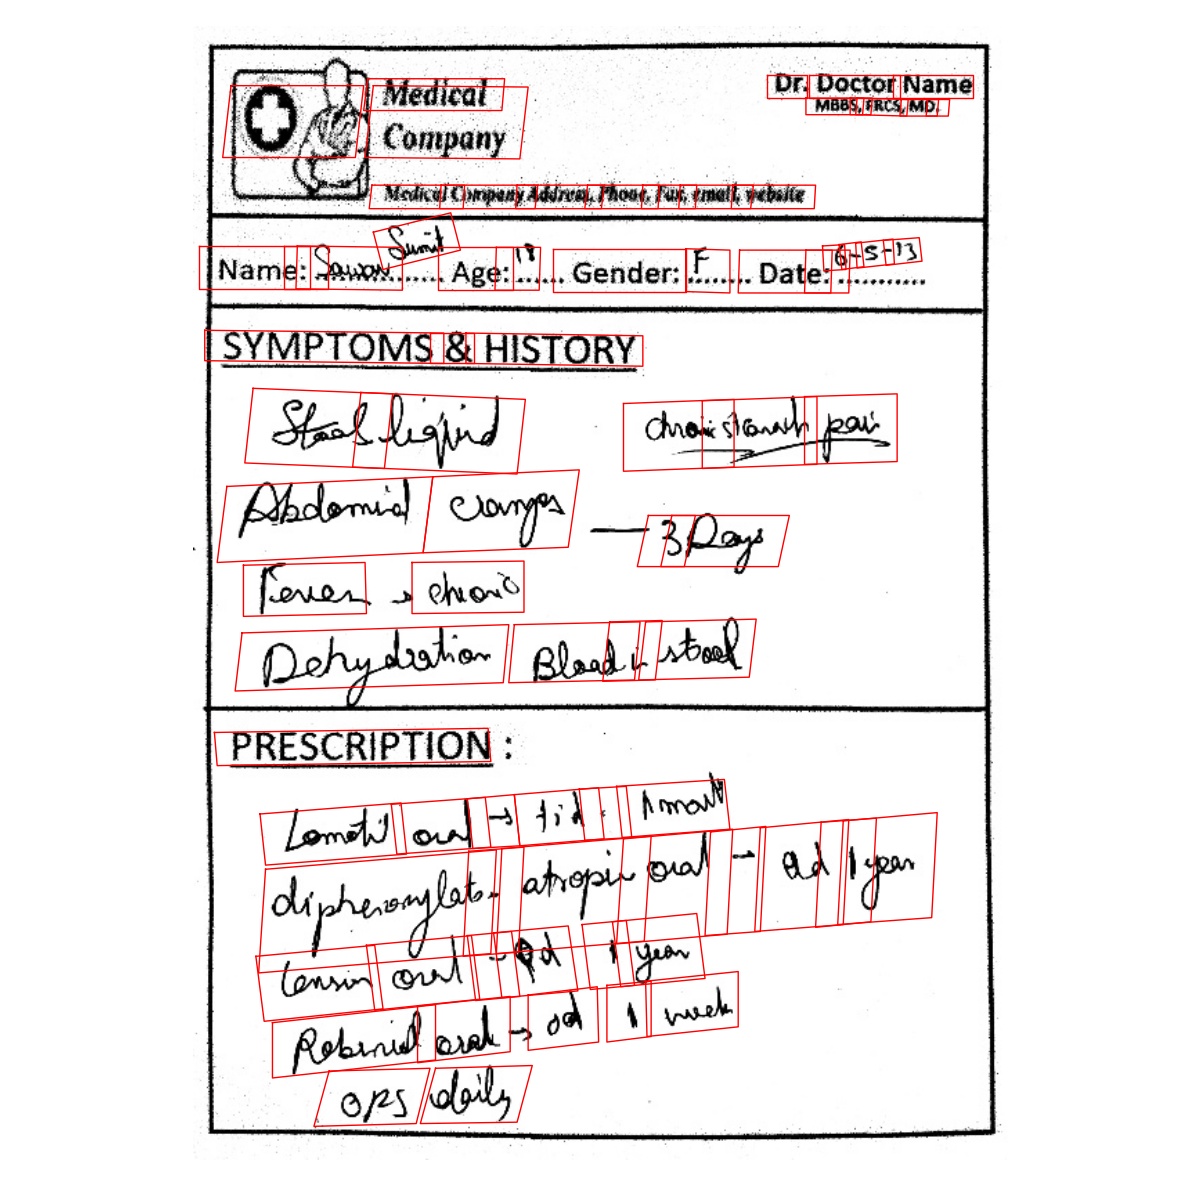 Dr. Doctor Name
MBBS, FRCS, MD.
Medical
Company
Medical Company Address, Phone, Fax, email, website
Name: Sawan Sumit Age: 18 Gender: F Date: 6-5-13
SYMPTOMS & HISTORY
Stool liquid
pain
Abdominal
3 Days
Fever → chronic
Dehydration Blood in stool
PRESCRIPTION :
Lomotil oral → tid. 1 month
diphenoxylate - atropine oral - qd 1 year
oral - qd 1 year
Robinul oral → od 1 week
ORS daily